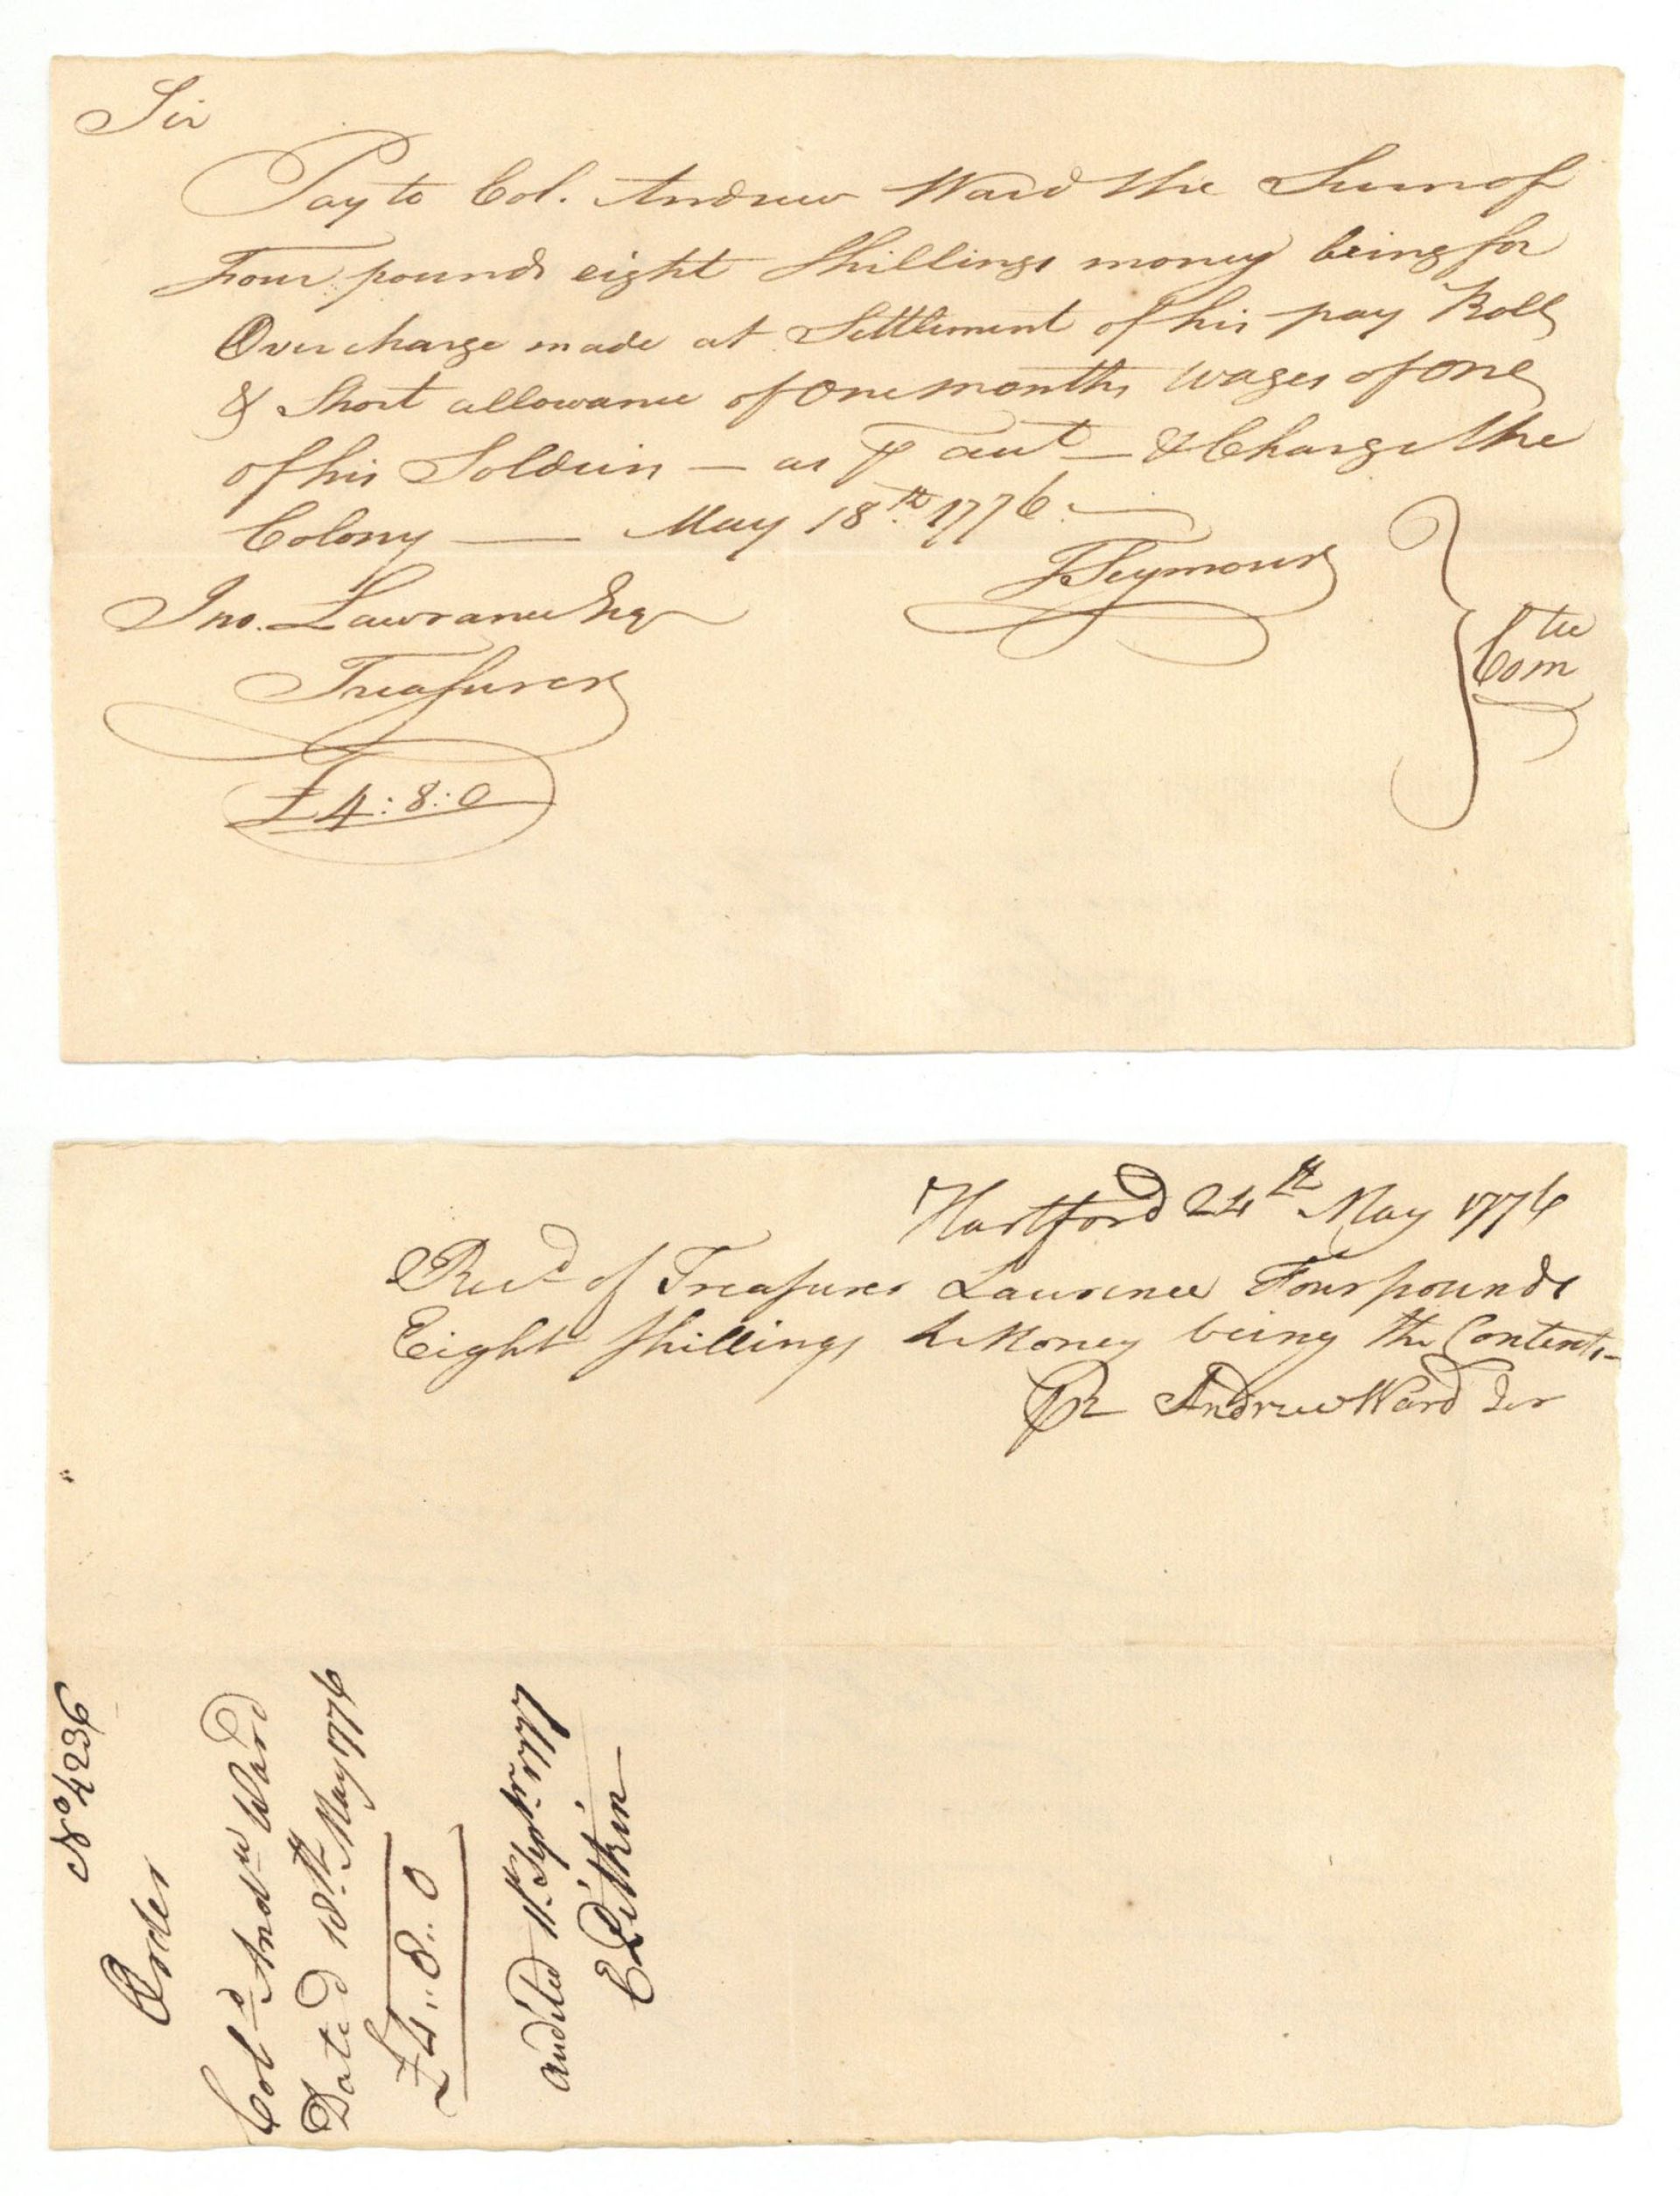 Sir
Pay to Col. Andrew Ward the Sum of
Four pounds eight Shillings money being for
Over charge made at Settlement of his pay Roll
& Short allowance of One months wages of one
of his Soldiers — as ⅌ Acct — & Charge the
Colony — May 18th. 1776. —
J Seymour } Comtee
Jno. Lawrance Esqr
Treasurer
£4:8:0
Hartford 24th May 1776
Recd of Treasurer Lawrence Four pounds
Eight shillings L Money being the Contents —
Pr Andrew Ward Jur
No 4236
Order
Colo Andw Ward
Dated 18th. May 1776
£4..8..0
Audited 11th. Septr. 1777
E Pitkin